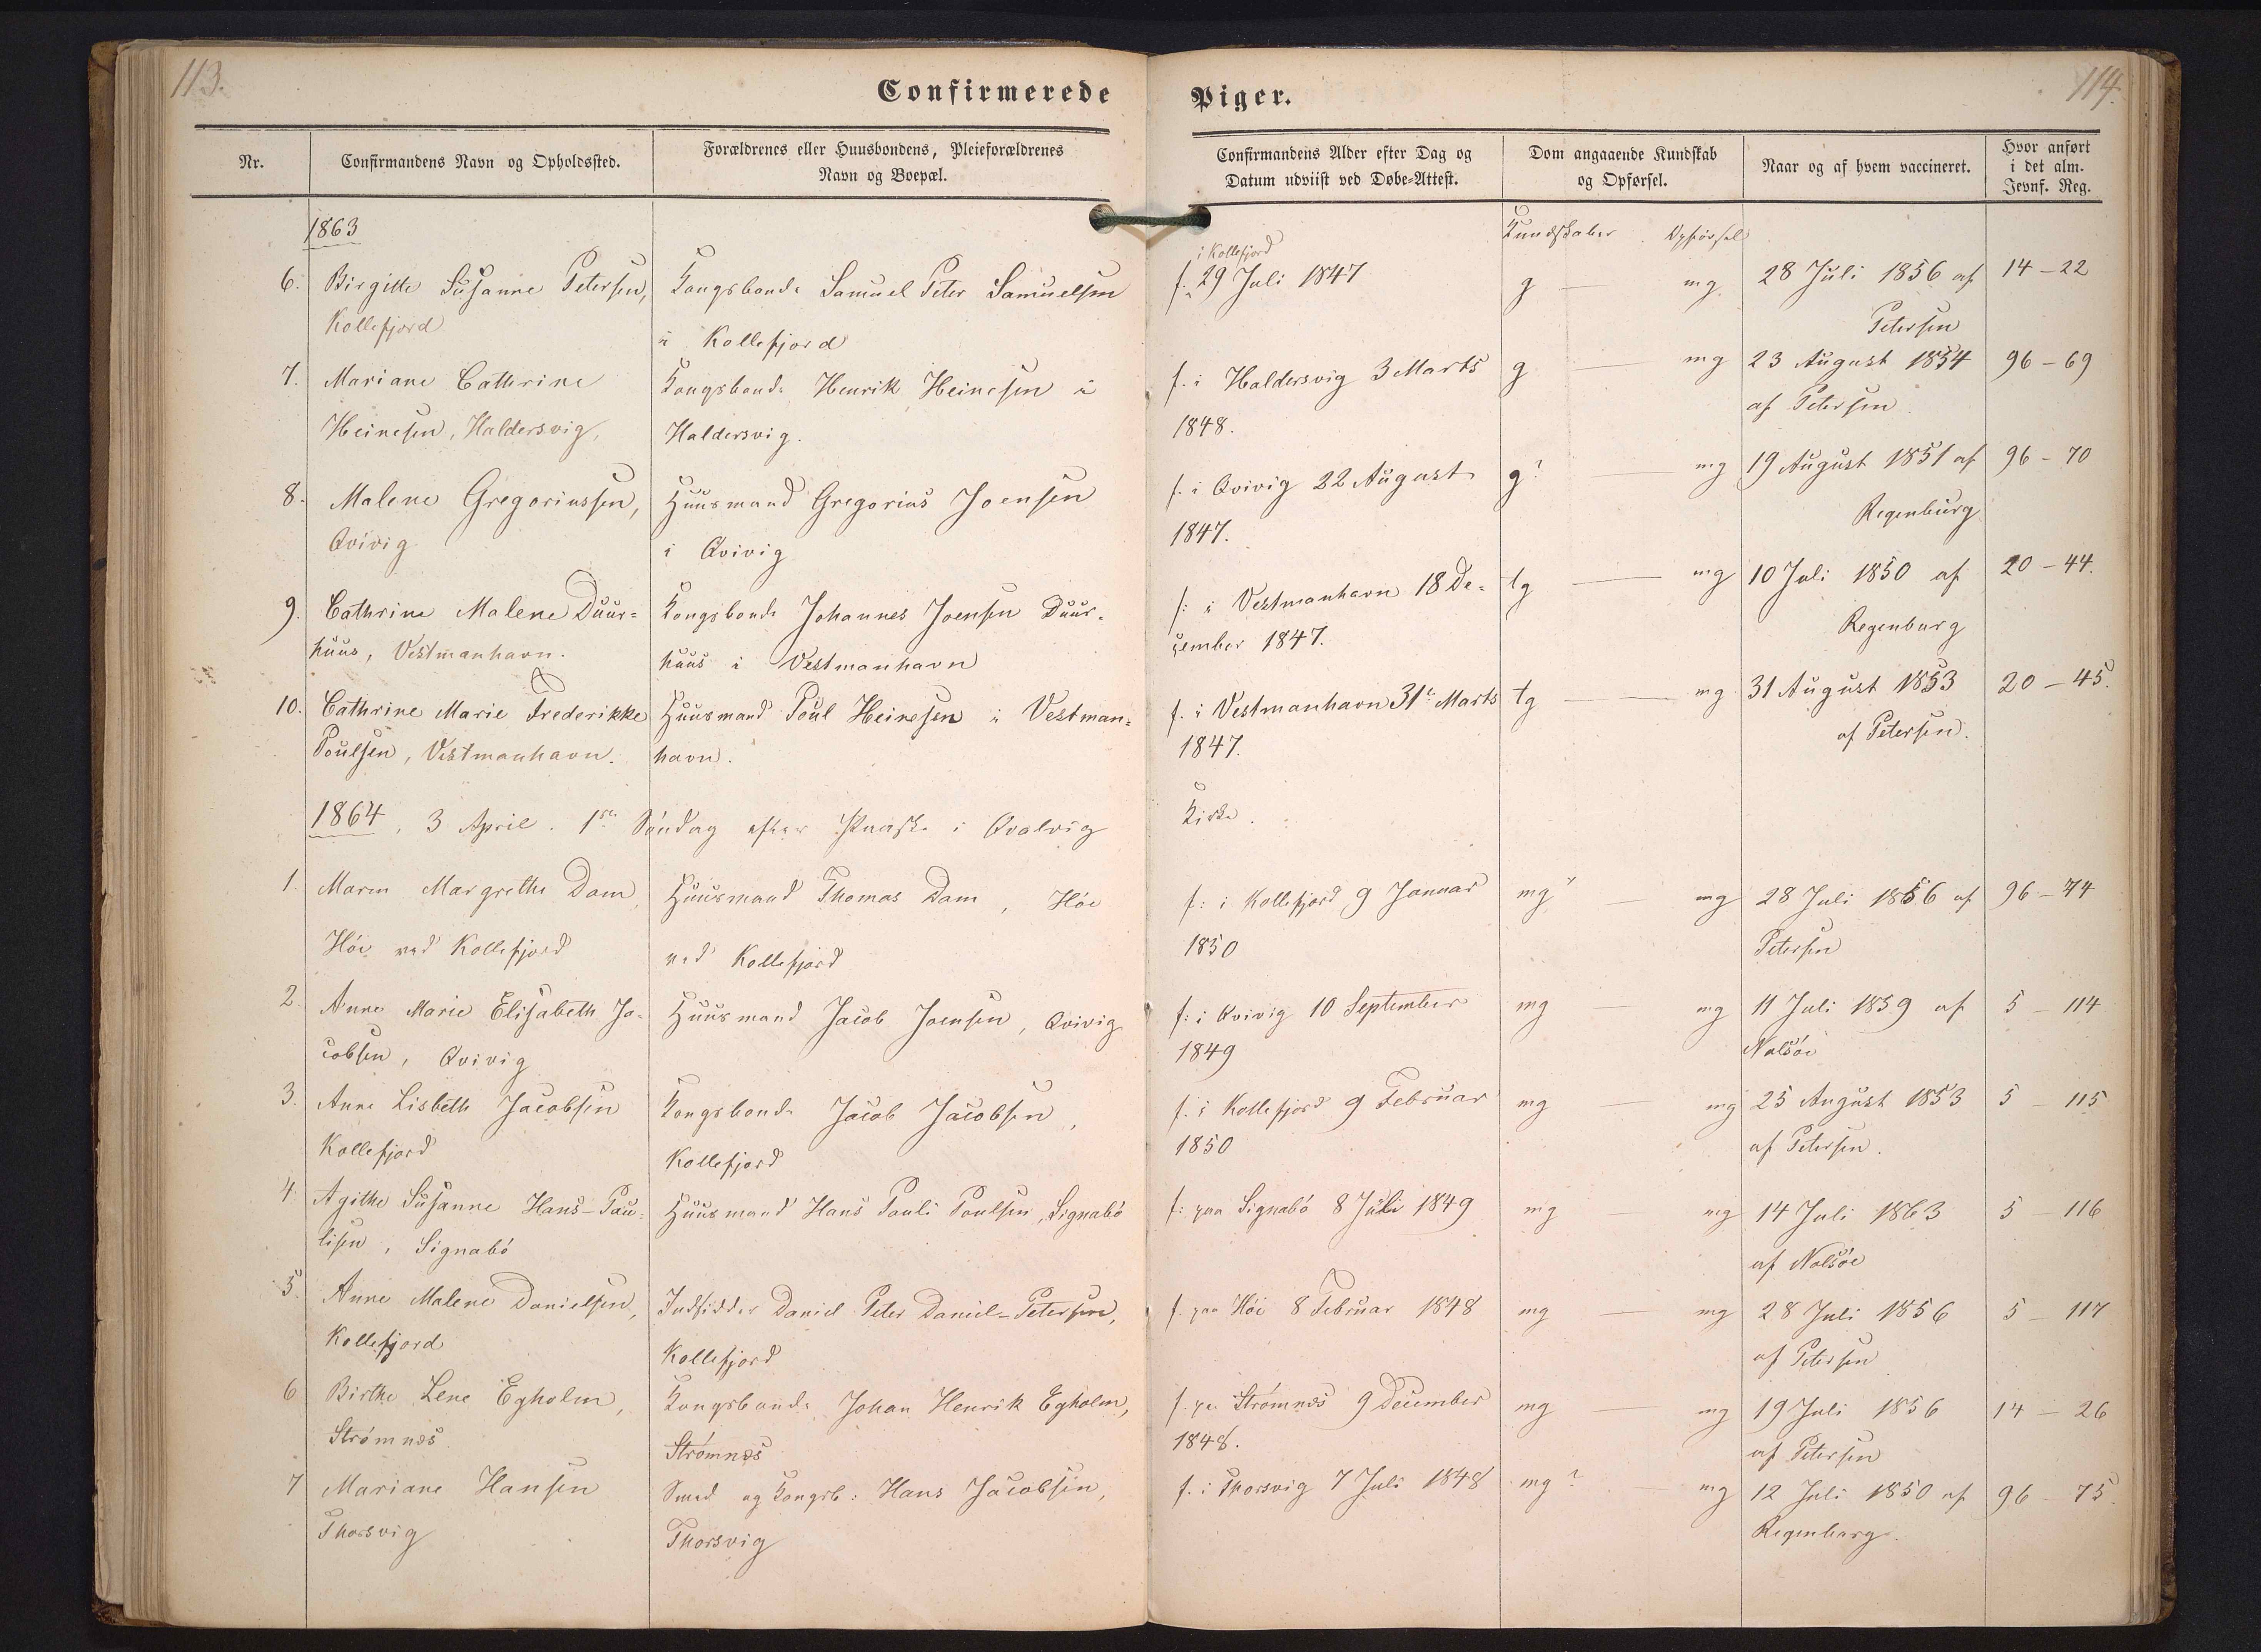 113.
Confirmerede
Piger.
114.
Nr.
Confirmandens Navn og Opholdssted.
Forældrenes eller Huusbondens, Pleieforældrenes
Navn og Boepæl.
Confirmandens Alder efter Dag og
Datum udviist ved Døbe-Attest.
Dom angaaende Kundskab
og Opførsel.
Naar og af hvem vaccineret.
Hvor anført
i det alm.
Jevnf. Reg.
1863
Kundskaber Opførsel
6. Birgitte Susanne Petersen,
Kollefjord
Kongsbonde Samuel Peter Samuelsen
i Kollefjord
i Kollefjord
f. 29 Juli 1847
g — mg
28 Juli 1856 af
Petersen
14 - 22
7. Mariane Cathrine
Heinesen, Haldersvig,
Kongsbonde Henrik Heinesen i
Haldersvig.
f. i Haldersvig 3 Marts
1848.
g — mg
23 August 1854
af Petersen
96 - 69
8. Malene Gregoriussen,
Qvivig
Huusmand Gregorius Joensen
i Qvivig
f. i Qvivig 22 August
1847.
g? — mg
19 August 1851 af
Regenburg
96 - 70
9. Cathrine Malene Duur=
huus, Vestmanhavn.
Kongsbonde Johannes Joensen Duur=
huus i Vestmanhavn
f: i Vestmanhavn 18 De=
cember 1847.
tg — mg
10 Juli 1850 af
Regenburg
20 - 44.
10. Cathrine Marie Frederikke
Poulsen, Vestmanhavn.
Huusmand Poul Heinesen i Vestman=
havn.
f. i Vestmanhavn 31te Marts
1847.
tg — mg
31 August 1853
af Petersen.
20 - 45.
1864, 3 April. 1ste Søndag efter Paaske i Qvalvig
Kirke.
1. Maren Margrethe Dam,
Høi ved Kollefjord
Huusmand Thomas Dam, Høi
ved Kollefjord
f: i Kollefjord 9 Januar
1850
mg — mg
28 Juli 1856 af
Petersen
96 - 74
2. Anne Marie Elisabeth Ja=
cobsen, Qvivig
Huusmand Jacob Joensen, Qvivig
f: i Qvivig 10 September
1849
mg — mg
11 Juli 1859 af
Nolsøe
5 - 114
3. Anne Lisbeth Jacobsen
Kollefjord
Kongsbonde Jacob Jacobsen,
Kollefjord
f. i Kollefjord 9 Februar
1850
mg — mg
25 August 1853
af Petersen.
5 - 115
4. Agithe Susanne Hans-Pau=
lisen, Signabø
Huusmand Hans Pauli Poulsen, Signabø
f: paa Signabø 8 Juli 1849
mg — mg
14 Juli 1863
af Nolsøe
5 - 116
5. Anne Malene Danielsen,
Kollefjord
Indsidder Daniel Peter Daniel-Petersen,
Kollefjord
f. paa Høi 8 Februar 1848
mg — mg
28 Juli 1856
af Petersen
5 - 117
6 Birthe Lene Egholm,
Strømnæs
Kongsbonde Johan Henrik Egholm,
Strømnæs
f. pa Strømnæs 9 December
1848.
mg — mg
19 Juli 1856
af Petersen
14 - 26
7 Mariane Hansen
Thorsvig
Smed og Kongsb: Hans Jacobsen,
Thorsvig
f. i Thorsvig 7 Juli 1848
mg? — mg
12 Juli 1850 af
Regenburg.
96 - 75.